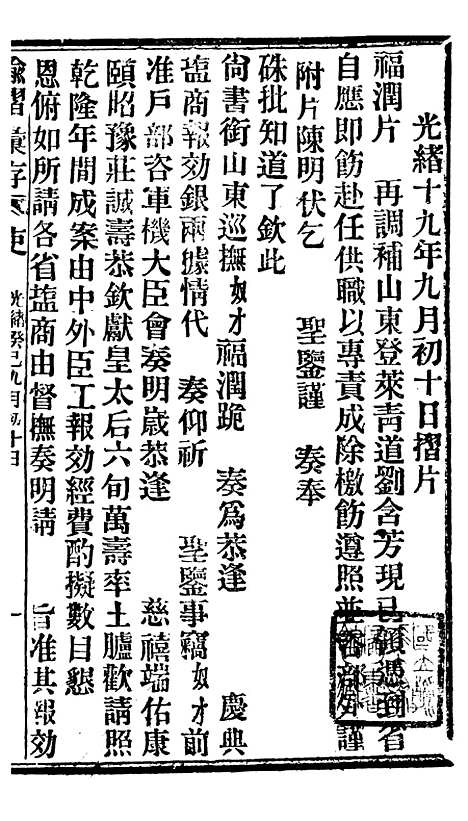 光緒十九年九月初十日摺片
福潤片　再調補山東登萊靑道劉含芳現已領憑到省
自應即飭赴任供職以專責成除檄飭遵照並咨部外謹
附片陳明伏乞　聖鑒謹　奏奉
硃批知道了欽此
尙書銜山東巡撫奴才福潤跪　奏爲恭逢　慶典
塩商報効銀兩據情代　奏仰祈　聖鑒事竊奴才前
准戶部咨軍機大臣會奏明歲恭逢　慈禧端佑康
頤昭豫莊誠壽恭欽獻皇太后六旬萬壽率土臚歡請照
乾隆年間成案由中外臣工報効經費酌擬數目懇
恩俯如所請各省塩商由督撫奏明請　旨准其報効
諭摺彙存　光緒癸巳九月初十日　一